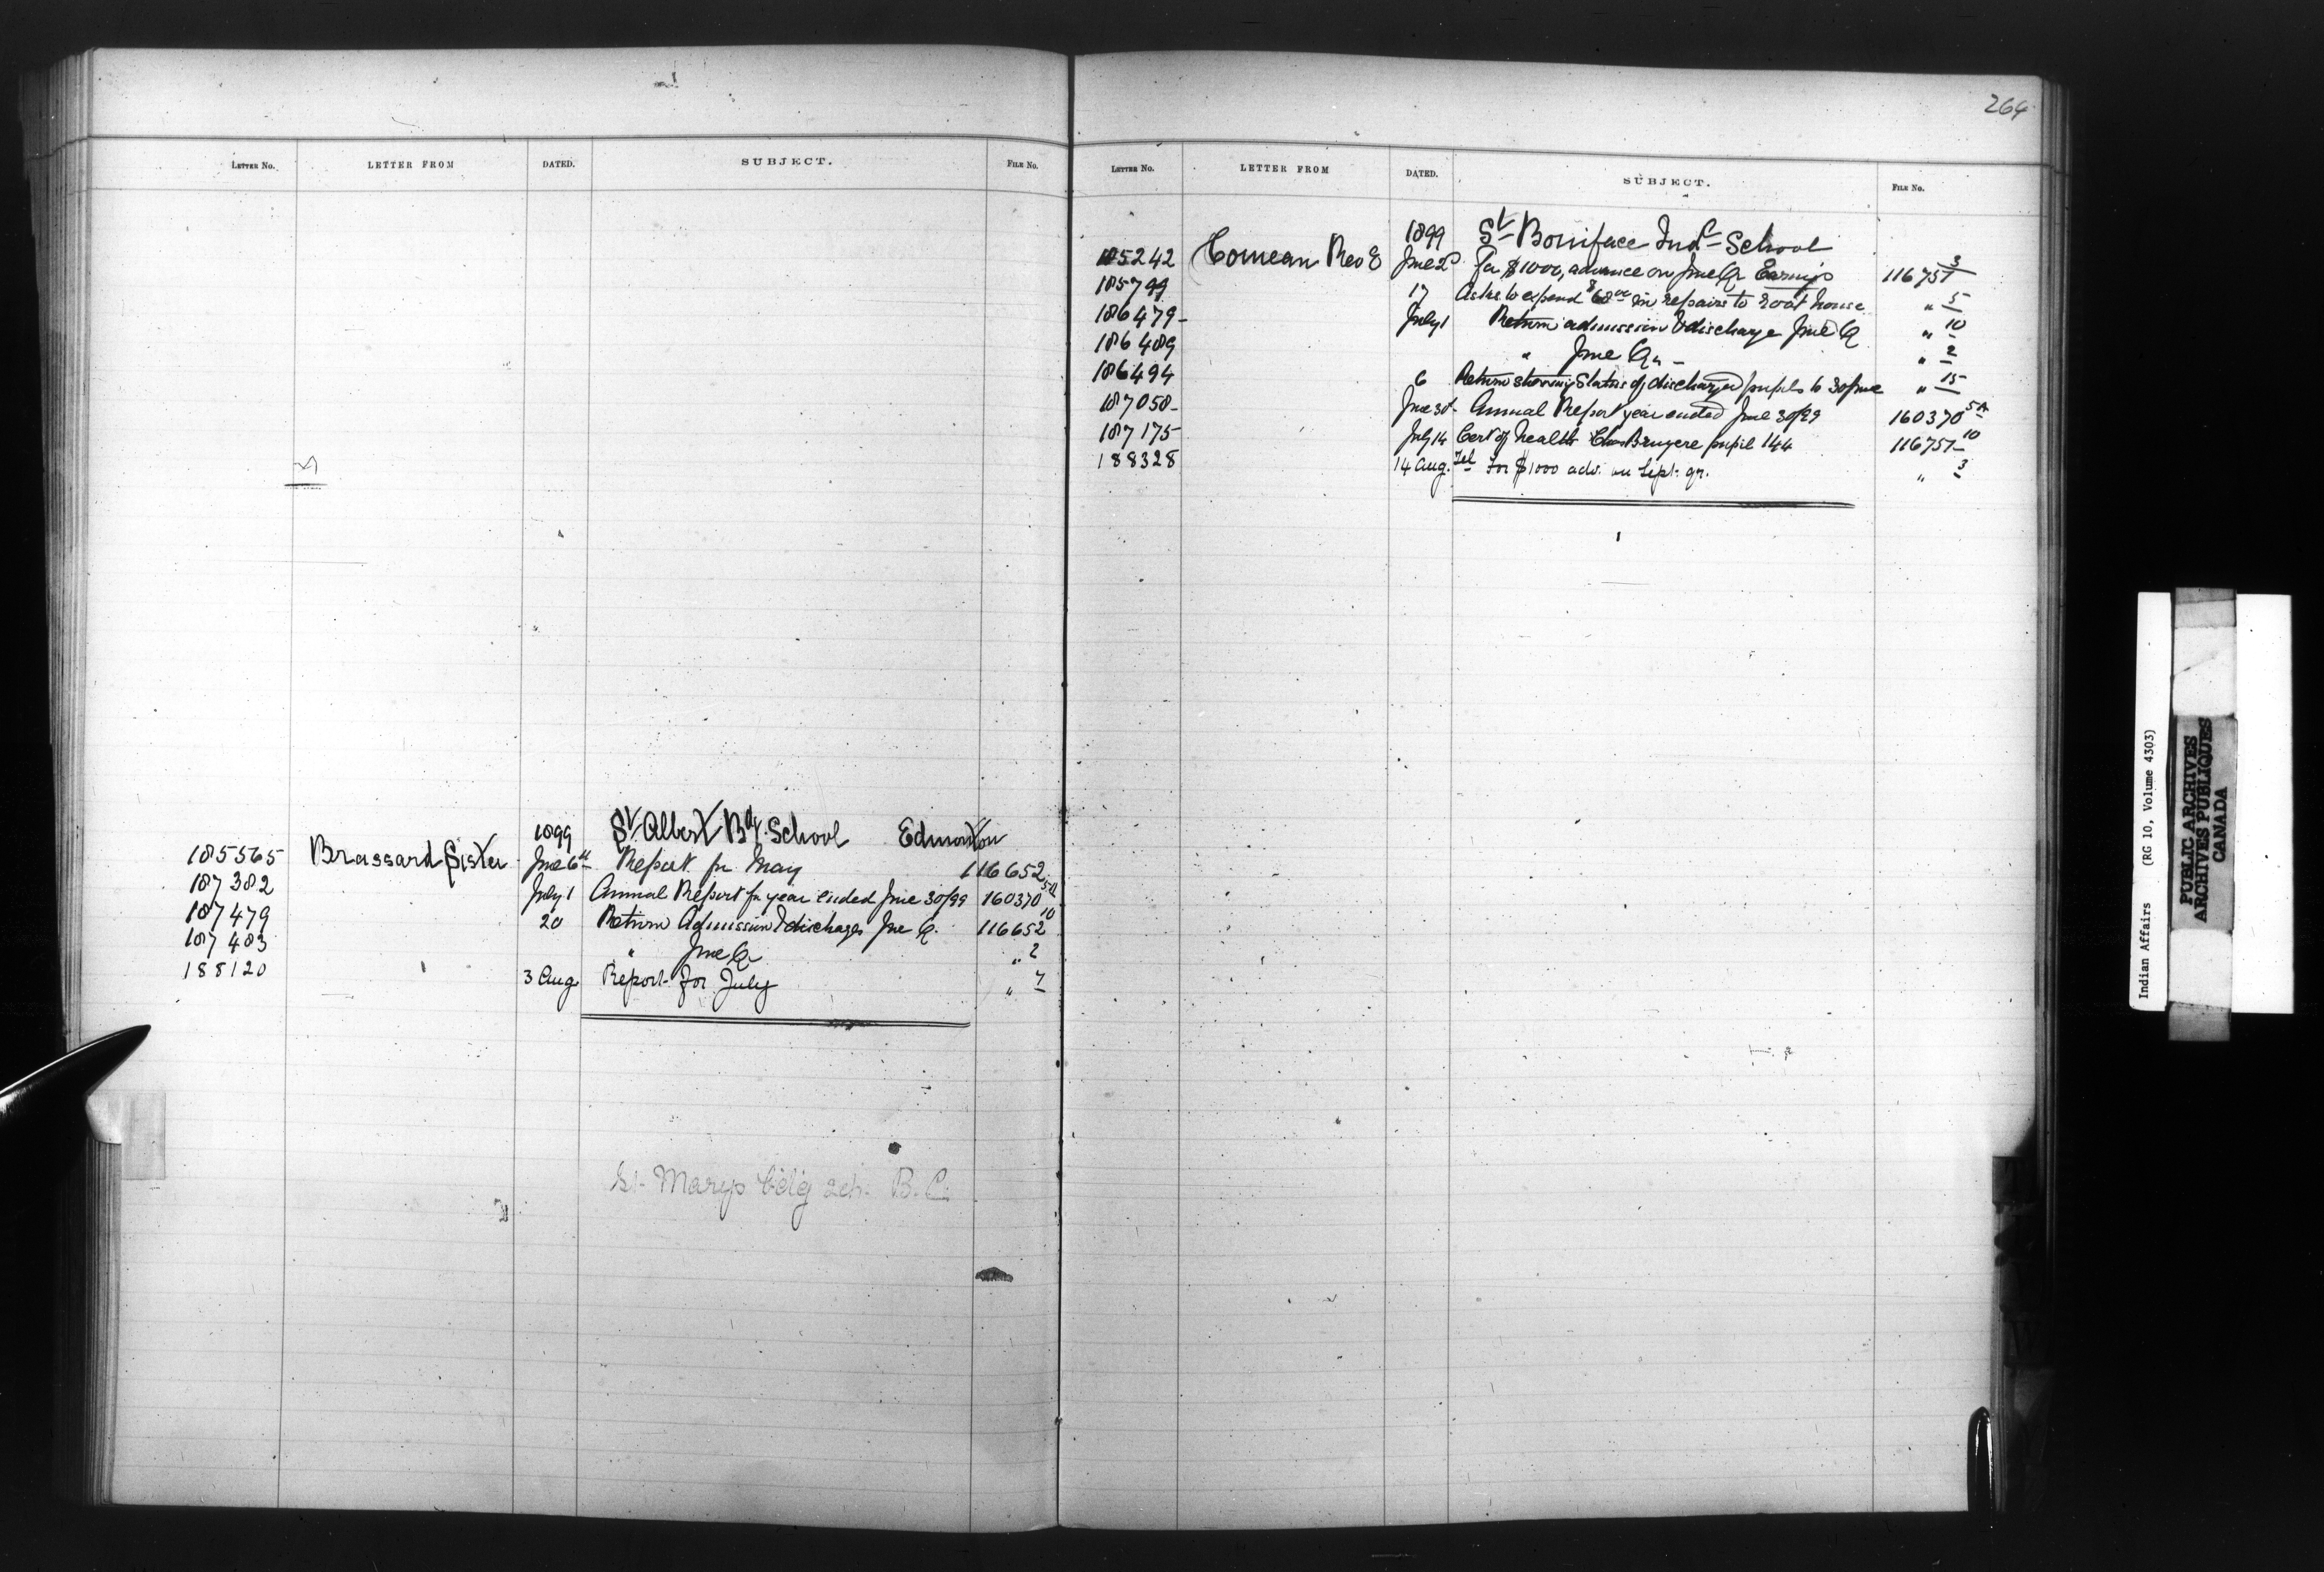 264
LETTER NO. LETTER FROM DATED. SUBJECT. FILE No.
1899 St Albert Bdg. School Edmonton
185565 Brassard Sister June 6th Report for May 116652
187382 July 1 Annual Report for year ended June 30/99 160370 5A
187479 20 Return Admission & discharges June Q. 116652 10
187483 " June Qr " 2
188120 3 Aug Report for July " 7
St. Marys bdg sch. B.C.
LETTER NO. LETTER FROM DATED. SUBJECT. FILE No.
1899 St Boniface Indl School
185242 Comeau Rev E June 2d for $1000, advance on June Qr Earnings 116751 3
185799 17 Asks to expend $68 00 in repairs to root house " 5
186479 July 1 Return admission & discharge June Q " 10
186489 " June Qr " 2
186494 6 Return showing Status of discharged pupils to 30 June " 15
187058 June 30 Annual Report year ended June 30/99 160370 5A
187175 July 14 Cert of health Chas Bruyere pupil 144 116751 10
188328 14 Aug. Tel for $1000 adv. on Sept. qr. " 3
Indian Affairs (RG 10, Volume 4303)
PUBLIC ARCHIVES
ARCHIVES PUBLIQUES
CANADA